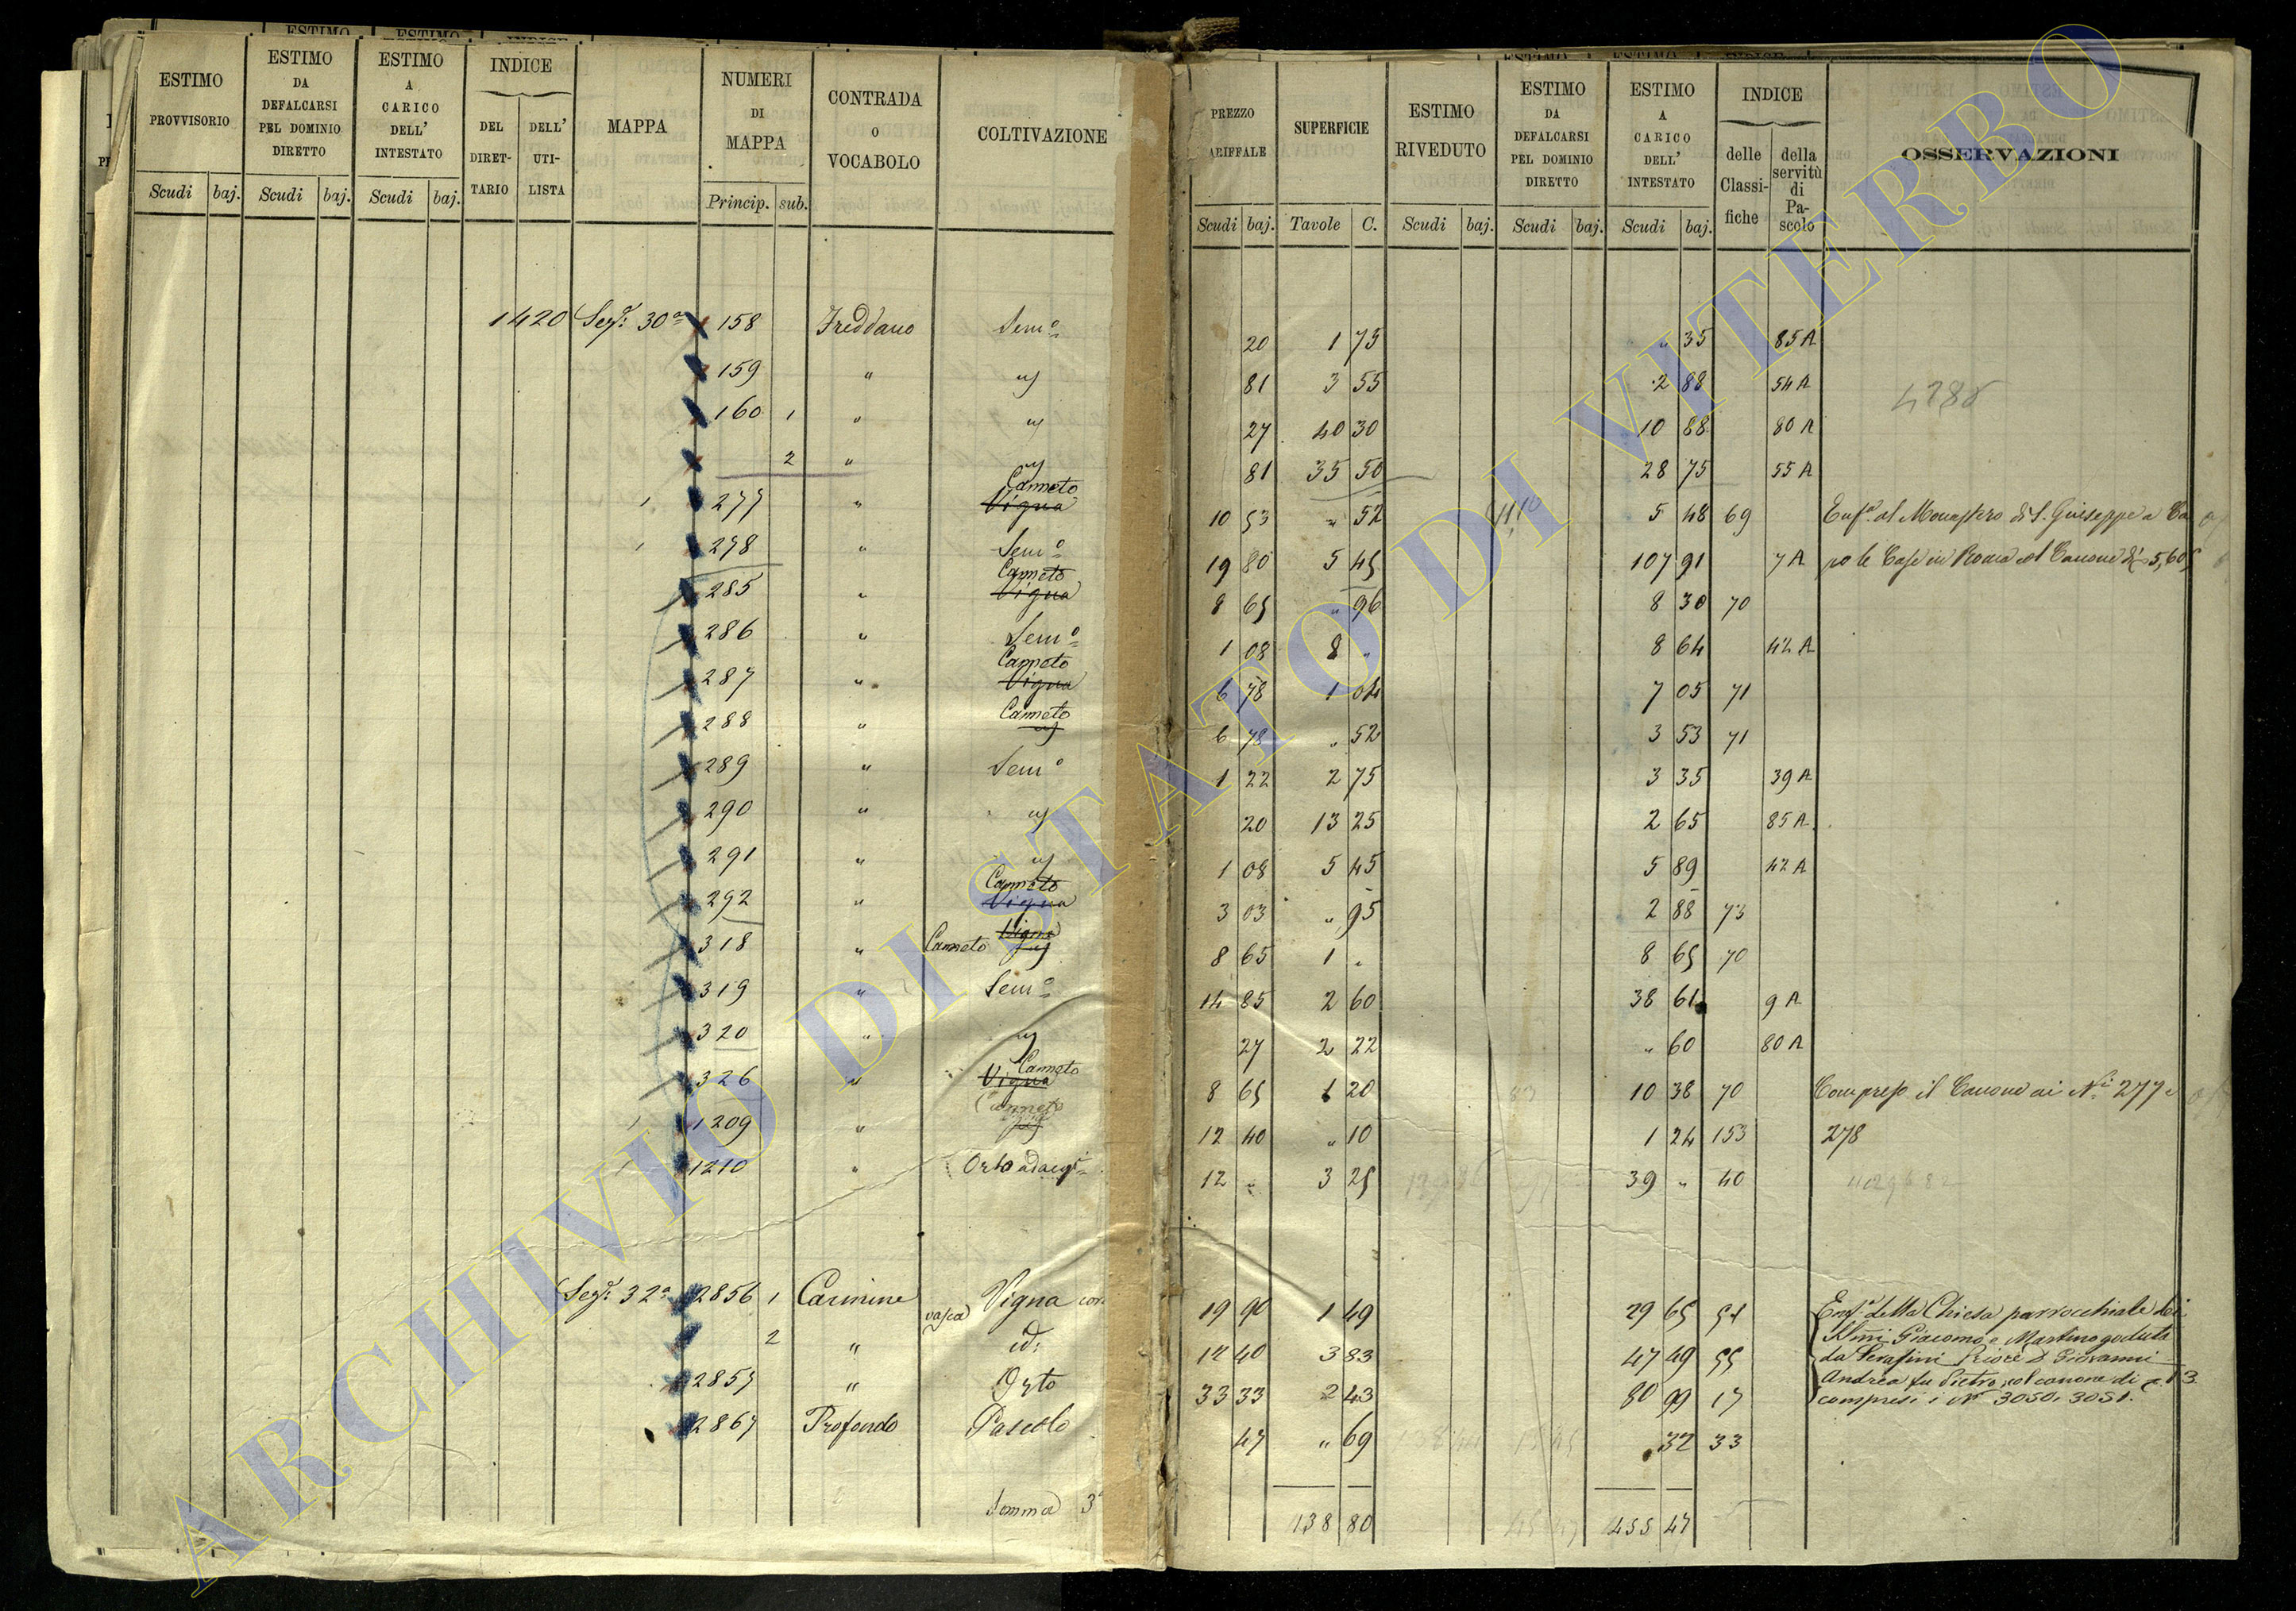 ESTIMO PROVVISORIO Scudi baj.
ESTIMO DA DEFALCARSI PEL DOMINIO DIRETTO Scudi baj.
ESTIMO A CARICO DELL' INTESTATO Scudi baj.
INDICE DEL DIRET- TARIO DELL' UTI- LISTA
MAPPA
NUMERI DI MAPPA Princip. sub.
CONTRADA O VOCABOLO
COLTIVAZIONE
PREZZO ARIFFALE Scudi baj.
SUPERFICIE Tavole C.
ESTIMO RIVEDUTO Scudi baj.
ESTIMO DA DEFALCARSI PEL DOMINIO DIRETTO Scudi baj.
ESTIMO A CARICO DELL' INTESTATO Scudi baj.
INDICE delle Classi- fiche della servitù di Pa- scolo
OSSERVAZIONI
1420 Sez. 30a 158 Freddano Sem.o 20 1 75 " 35 85 A
159 " id 81 3 55 2 88 54 A
160 1 " id 27 40 30 10 88 80 A
2 " id 81 35 50 28 75 55 A
1 277 " Canneto Vigna 10 53 " 52 5 48 69 Enf. al Monastero di S. Giuseppe a Ca
1 278 " Sem.o 19 80 5 45 107 91 7 A po le Case in Roma col Canone di 5,60
285 " Canneto Vigna 8 65 " 96 8 30 70
286 " Sem.o 1 08 8 " 8 64 42 A
287 " Canneto Vigna 6 78 1 04 7 05 71
288 " Canneto id 6 78 " 52 3 53 71
289 " Sem.o 1 22 2 75 3 35 39 A
290 " id 20 13 25 2 65 85 A
291 " id 1 08 5 45 5 89 42 A
292 " Canneto Vigna 3 03 " 95 2 88 73
318 " Canneto Vigna id 8 65 1 " 8 65 70
319 " Sem.o 14 85 2 60 38 61 9 A
320 " id 27 2 22 " 60 80 A
326 " Canneto Vigna 8 65 1 20 10 38 70 Compreso il Canone ai N.i 277 e
1 1209 " Canneto id 12 40 " 10 1 24 153 278
1 1210 " Orto adacq. 12 " 3 25 39 " 40
Sez. 32a 2856 1 Carmine Vigna con vasca 19 90 1 49 29 65 54 Enf. della Chiesa parrocchiale dei
2 " id. 12 40 3 83 47 49 55 SSmi Giacomo e Martino goduta
da Serafini Priore D Giovanni
2857 " Orto 33 33 2 43 80 99 17 Andrea fu Pietro col canone di 13
compresi i N 3050, 3051.
2867 Profondo Pascolo 47 " 69 32 33
Somma 3a 138 80 455 47
ARCHIVIO DI STATO DI VITERBO